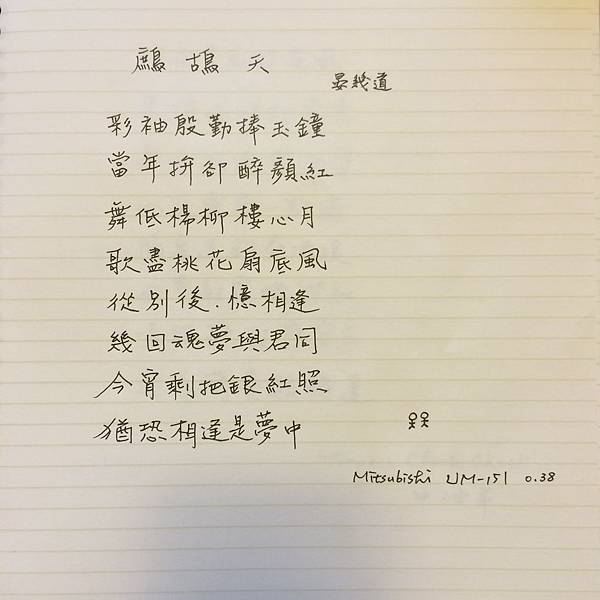 鷓鴣天
晏幾道
彩袖殷勤捧玉鐘
當年拚卻醉顏紅
舞低楊柳樓心月
歌盡桃花扇底風
從別後．憶相逢
幾回魂夢與君同
今宵剩把銀紅照
猶恐相逢是夢中
Mitsubishi UM-151 0.38